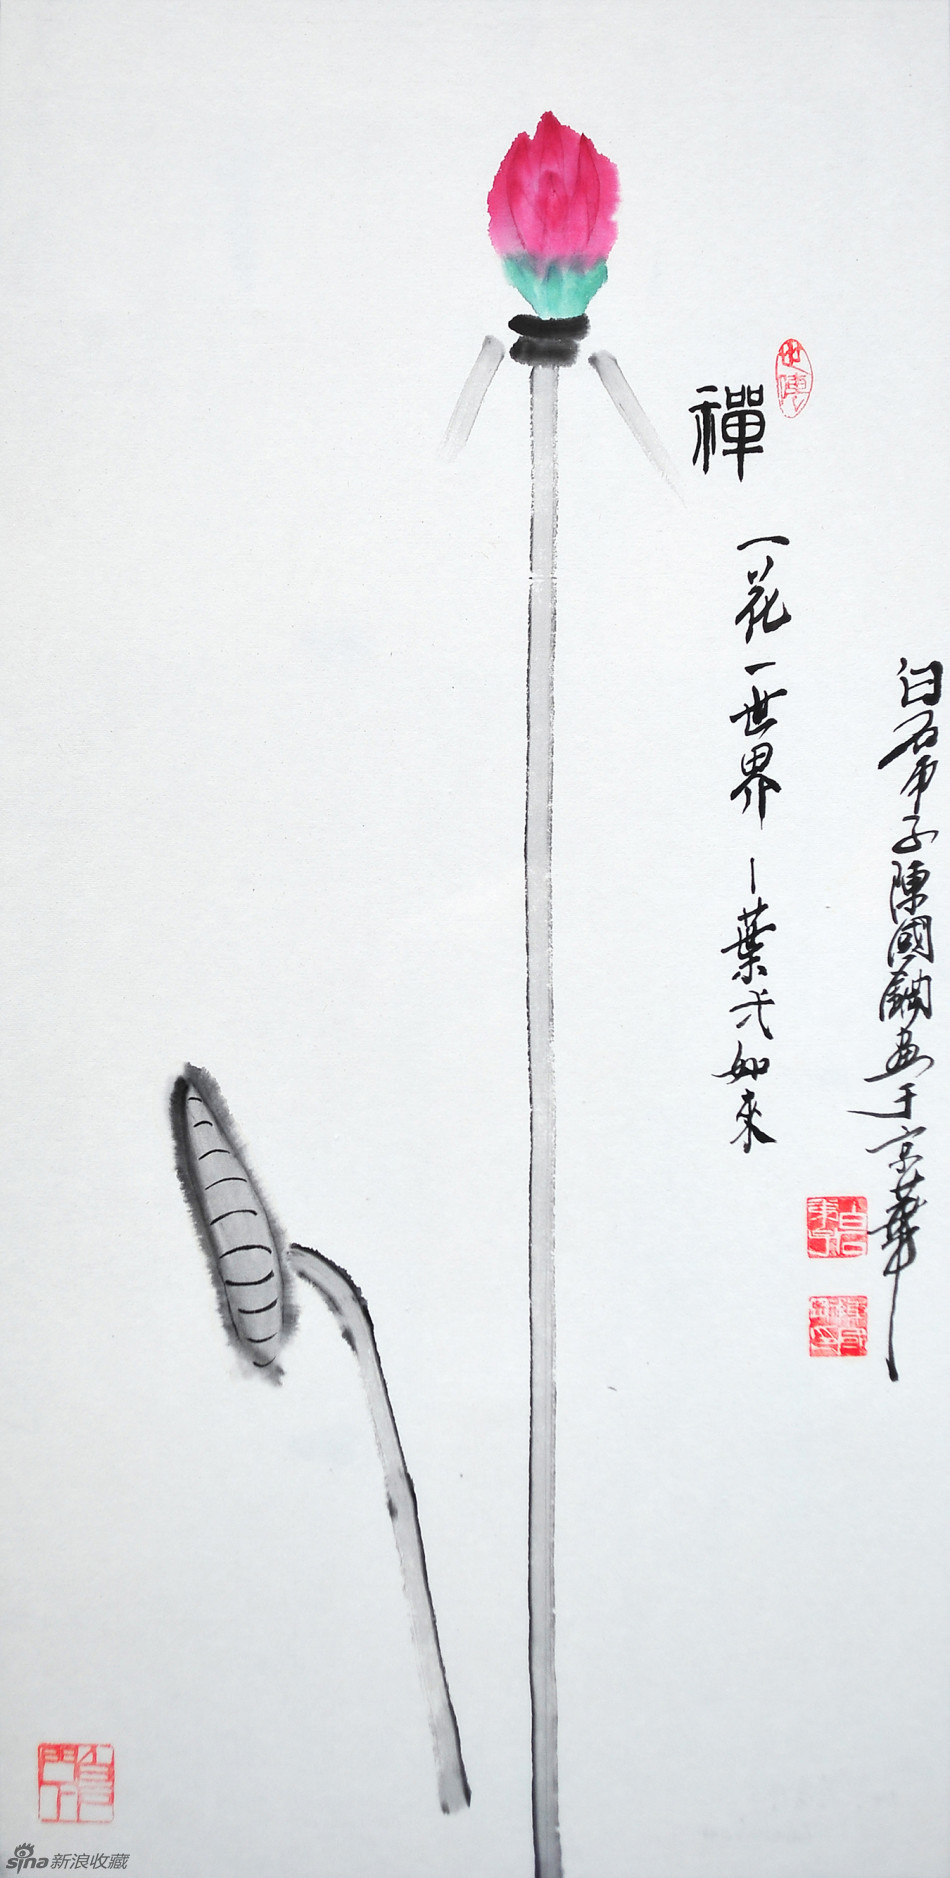 禪
一花一世界 一葉弍如來
白石弔子陳國鏽畫于京華
sina新浪收藏